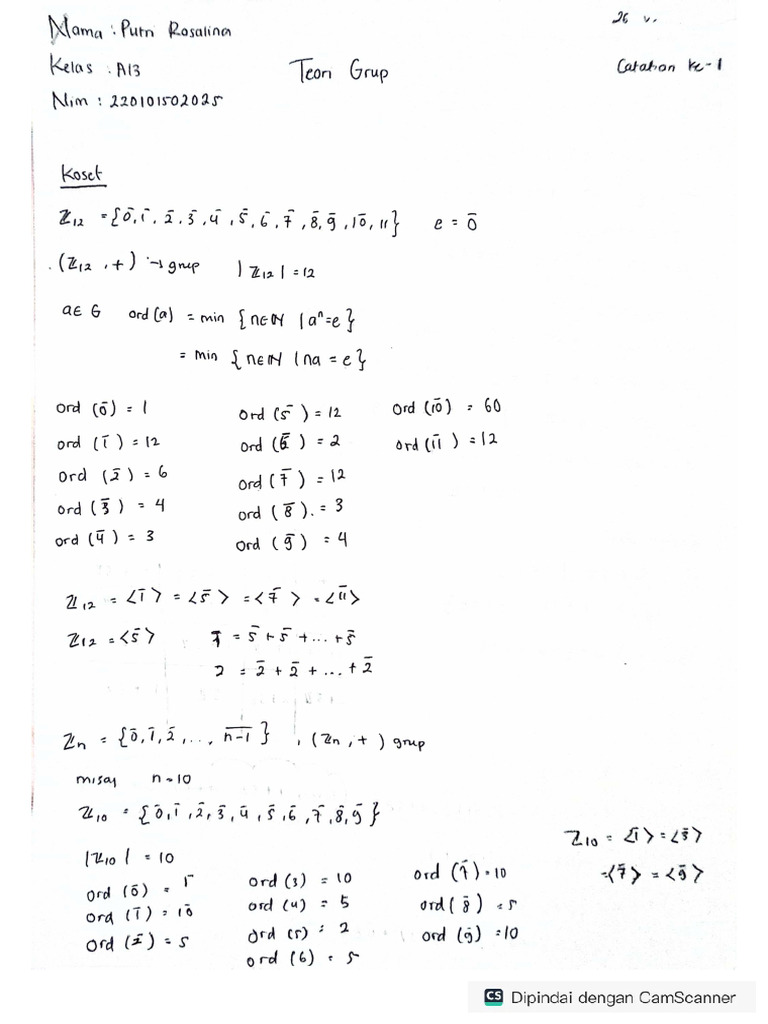 Nama : Putri Rosalina
26 v.
Kelas : A13
Teori Grup
Catatan Ke-1
Nim : 220101502025
Koset
ℤ₁₂ = {0̄, 1̄, 2̄, 3̄, 4̄, 5̄, 6̄, 7̄, 8̄, 9̄, 1̄0̄, 11} e = 0̄
(ℤ₁₂, +) → grup |ℤ₁₂| = 12
a ∈ G ord(a) = min {n ∈ ℕ | aⁿ = e}
= min {n ∈ ℕ | na = e}
ord (0̄) = 1 ord (5̄) = 12 ord (1̄0̄) = 60
ord (1̄) = 12 ord (6̄) = 2 ord (1̄1̄) = 12
ord (2̄) = 6 ord (7̄) = 12
ord (3̄) = 4 ord (8̄). = 3
ord (4̄) = 3 ord (9̄) = 4
ℤ₁₂ = <1̄> = <5̄> = <7̄> = <1̄1̄>
ℤ₁₂ = <5̄> 7 = 5̄ + 5̄ + ... + 5̄
2 = 2̄ + 2̄ + ... + 2̄
ℤn = {0̄, 1̄, 2̄, ..., n̄-̄1̄}, (ℤn, +) grup
misal n = 10
ℤ₁₀ = {0̄, 1̄, 2̄, 3̄, 4̄, 5̄, 6̄, 7̄, 8̄, 9̄}
|ℤ₁₀| = 10
ℤ₁₀ = <1̄> = <3̄>
= <7̄> = <9̄>
ord (0̄) = 1 ord (3) = 10 ord (7̄) = 10
ord (1̄) = 10 ord (4) = 5 ord (8̄) = 5
ord (2̄) = 5 ord (5) = 2 ord (9̄) = 10
ord (6) = 5
CS Dipindai dengan CamScanner